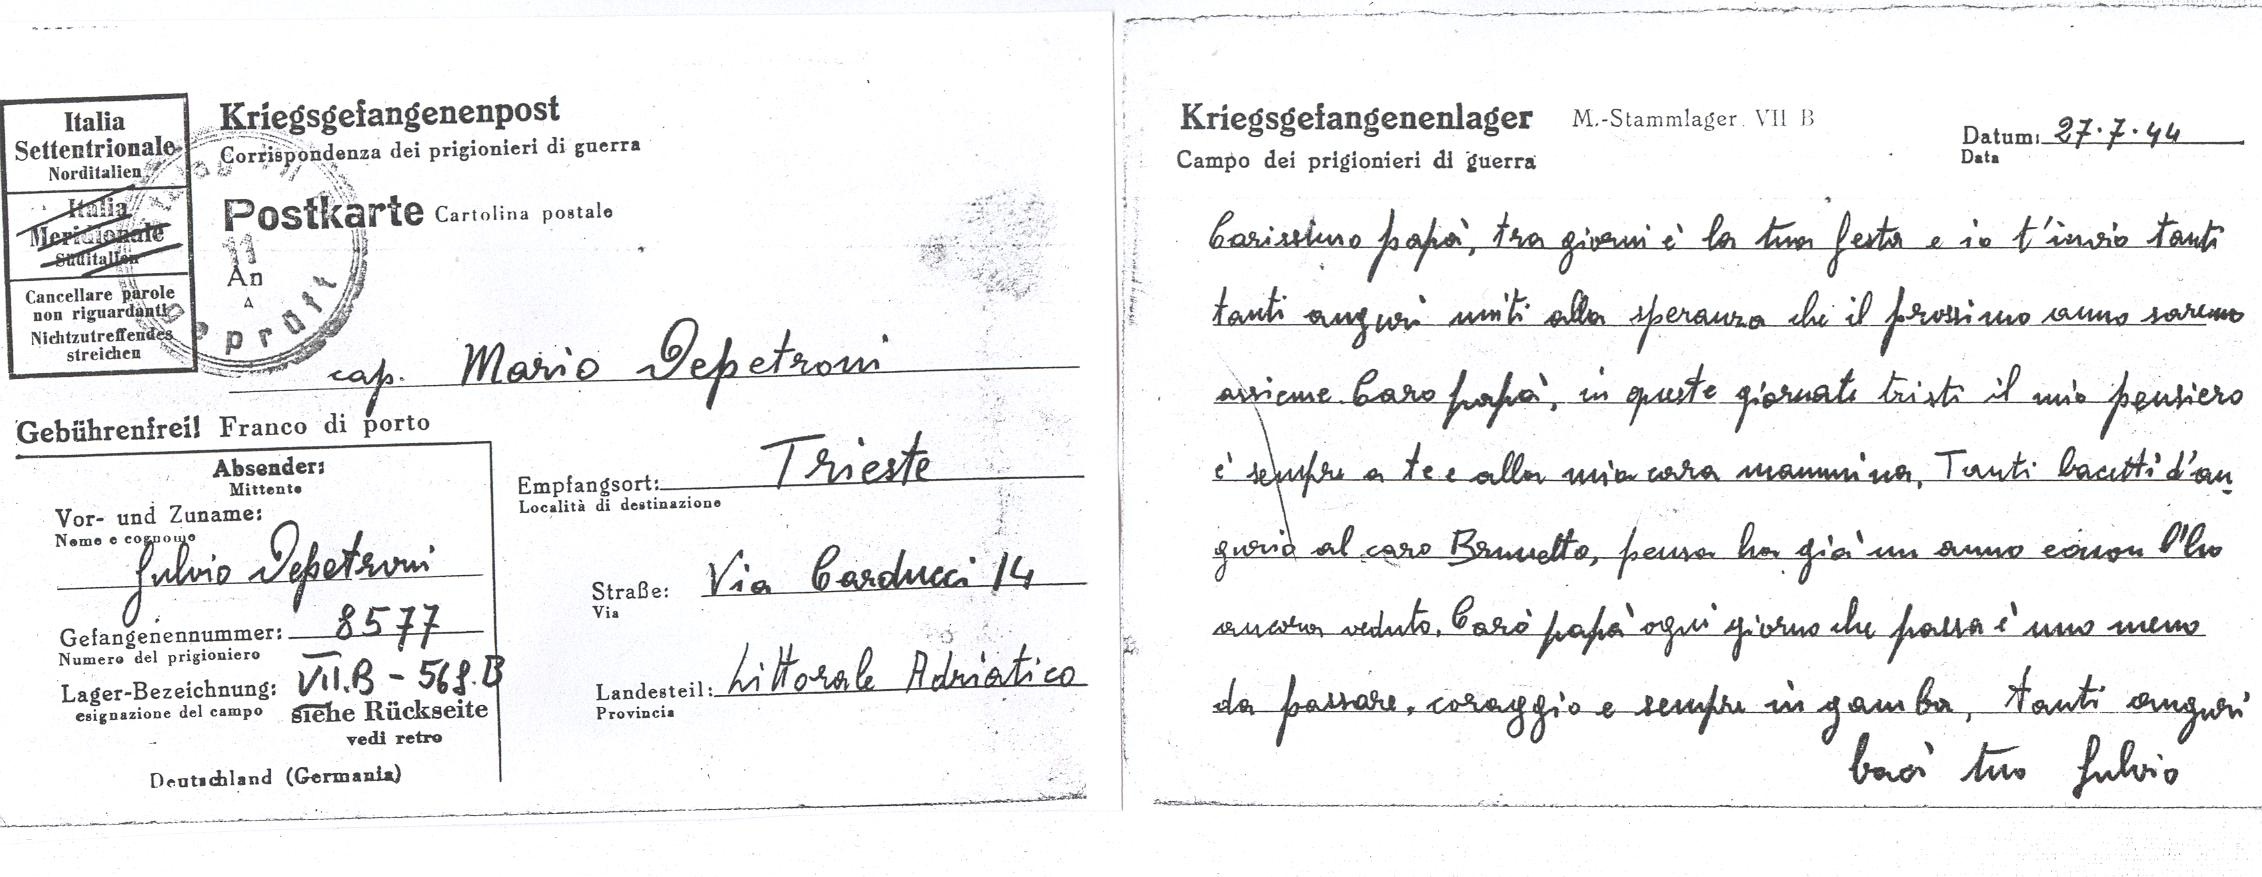 Italia
Settentrionale
Norditalien
Italia
Meridionale
Süditalien
Cancellare parole
non riguardanti
Nichtzutreffendes
streichen
Kriegsgefangenenpost
Corrispondenza dei prigionieri di guerra
Postkarte Cartolina postale
11
An
A
Geprüft
cap. Mario Depetroni
Gebührenfrei! Franco di porto
Absender:
Mittente
Vor- und Zuname:
Nome e cognome
Fulvio Depetroni
Gefangenennummer: 8577
Numero del prigioniero
Lager-Bezeichnung: VII.B - 568.B
esignazione del campo
siehe Rückseite
vedi retro
Deutschland (Germania)
Empfangsort: Trieste
Località di destinazione
Straße: Via Carducci 14
Via
Landesteil: Littorale Adriatico
Provincia
Kriegsgefangenenlager M.-Stammlager VII B
Campo dei prigionieri di guerra
Datum: 27.7.44
Data
Carissimo papà, tra giorni è la tua festa e io t'invio tanti
tanti auguri uniti alla speranza che il prossimo anno saremo
assieme. Caro papà, in queste giornate tristi il mio pensiero
è sempre a te e alla mia cara mammina. Tanti bacetti d'au
gurio al caro Brunetto, pensa ha già un anno e non l'ho
ancora veduto. Caro papà ogni giorno che passa è uno meno
da passare, coraggio e sempre in gamba, tanti auguri
baci tuo Fulvio